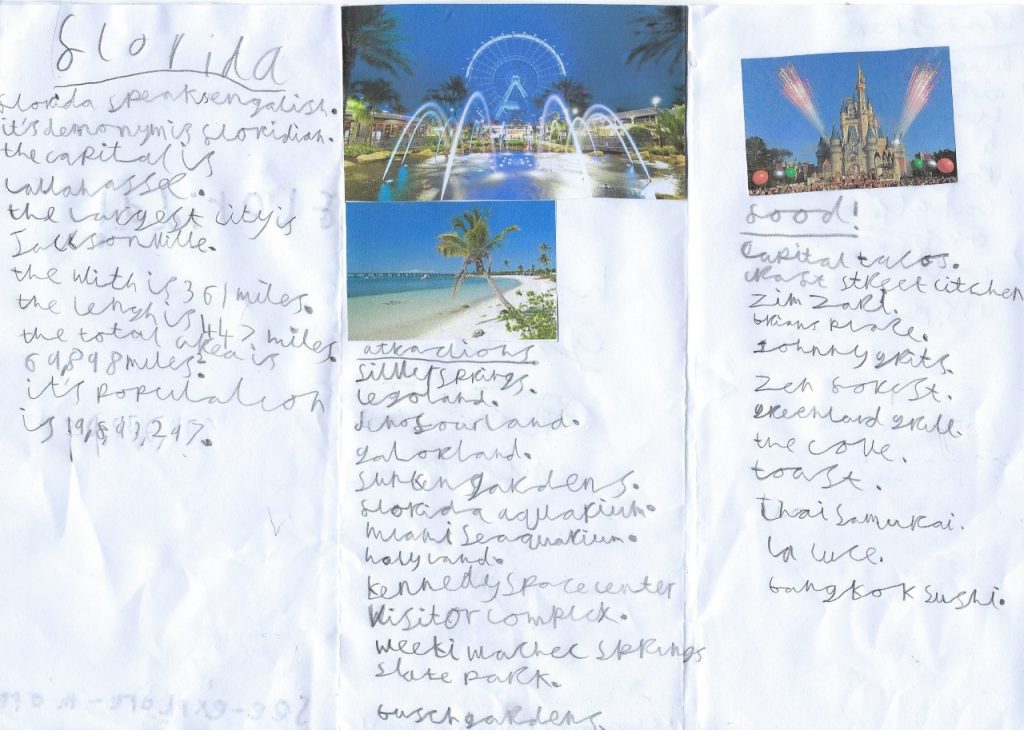 florida
florida speaks engalish.
it's demonym is floridian.
the capital is
tallahassee.
the largest city is
Jacksonville.
the with is 361 miles.
the lengh is 447 miles.
the total area is
69,898 miles².
it's populaleon
is 19,893,297.
attractions
silver springs.
legoland.
dinosourland.
gatorland.
sunken gardens.
florida aquarium.
miami seaquarium.
holy land.
kennedy space center
visitor complex.
weeki wachee springs
state park.
busch gardens
food!
capital tacos.
east street citchen
zim zari.
brians place.
johnny grits.
zen forest.
greenland grill.
the cove.
toast.
thai samurai.
la luce.
bangkok sushi.